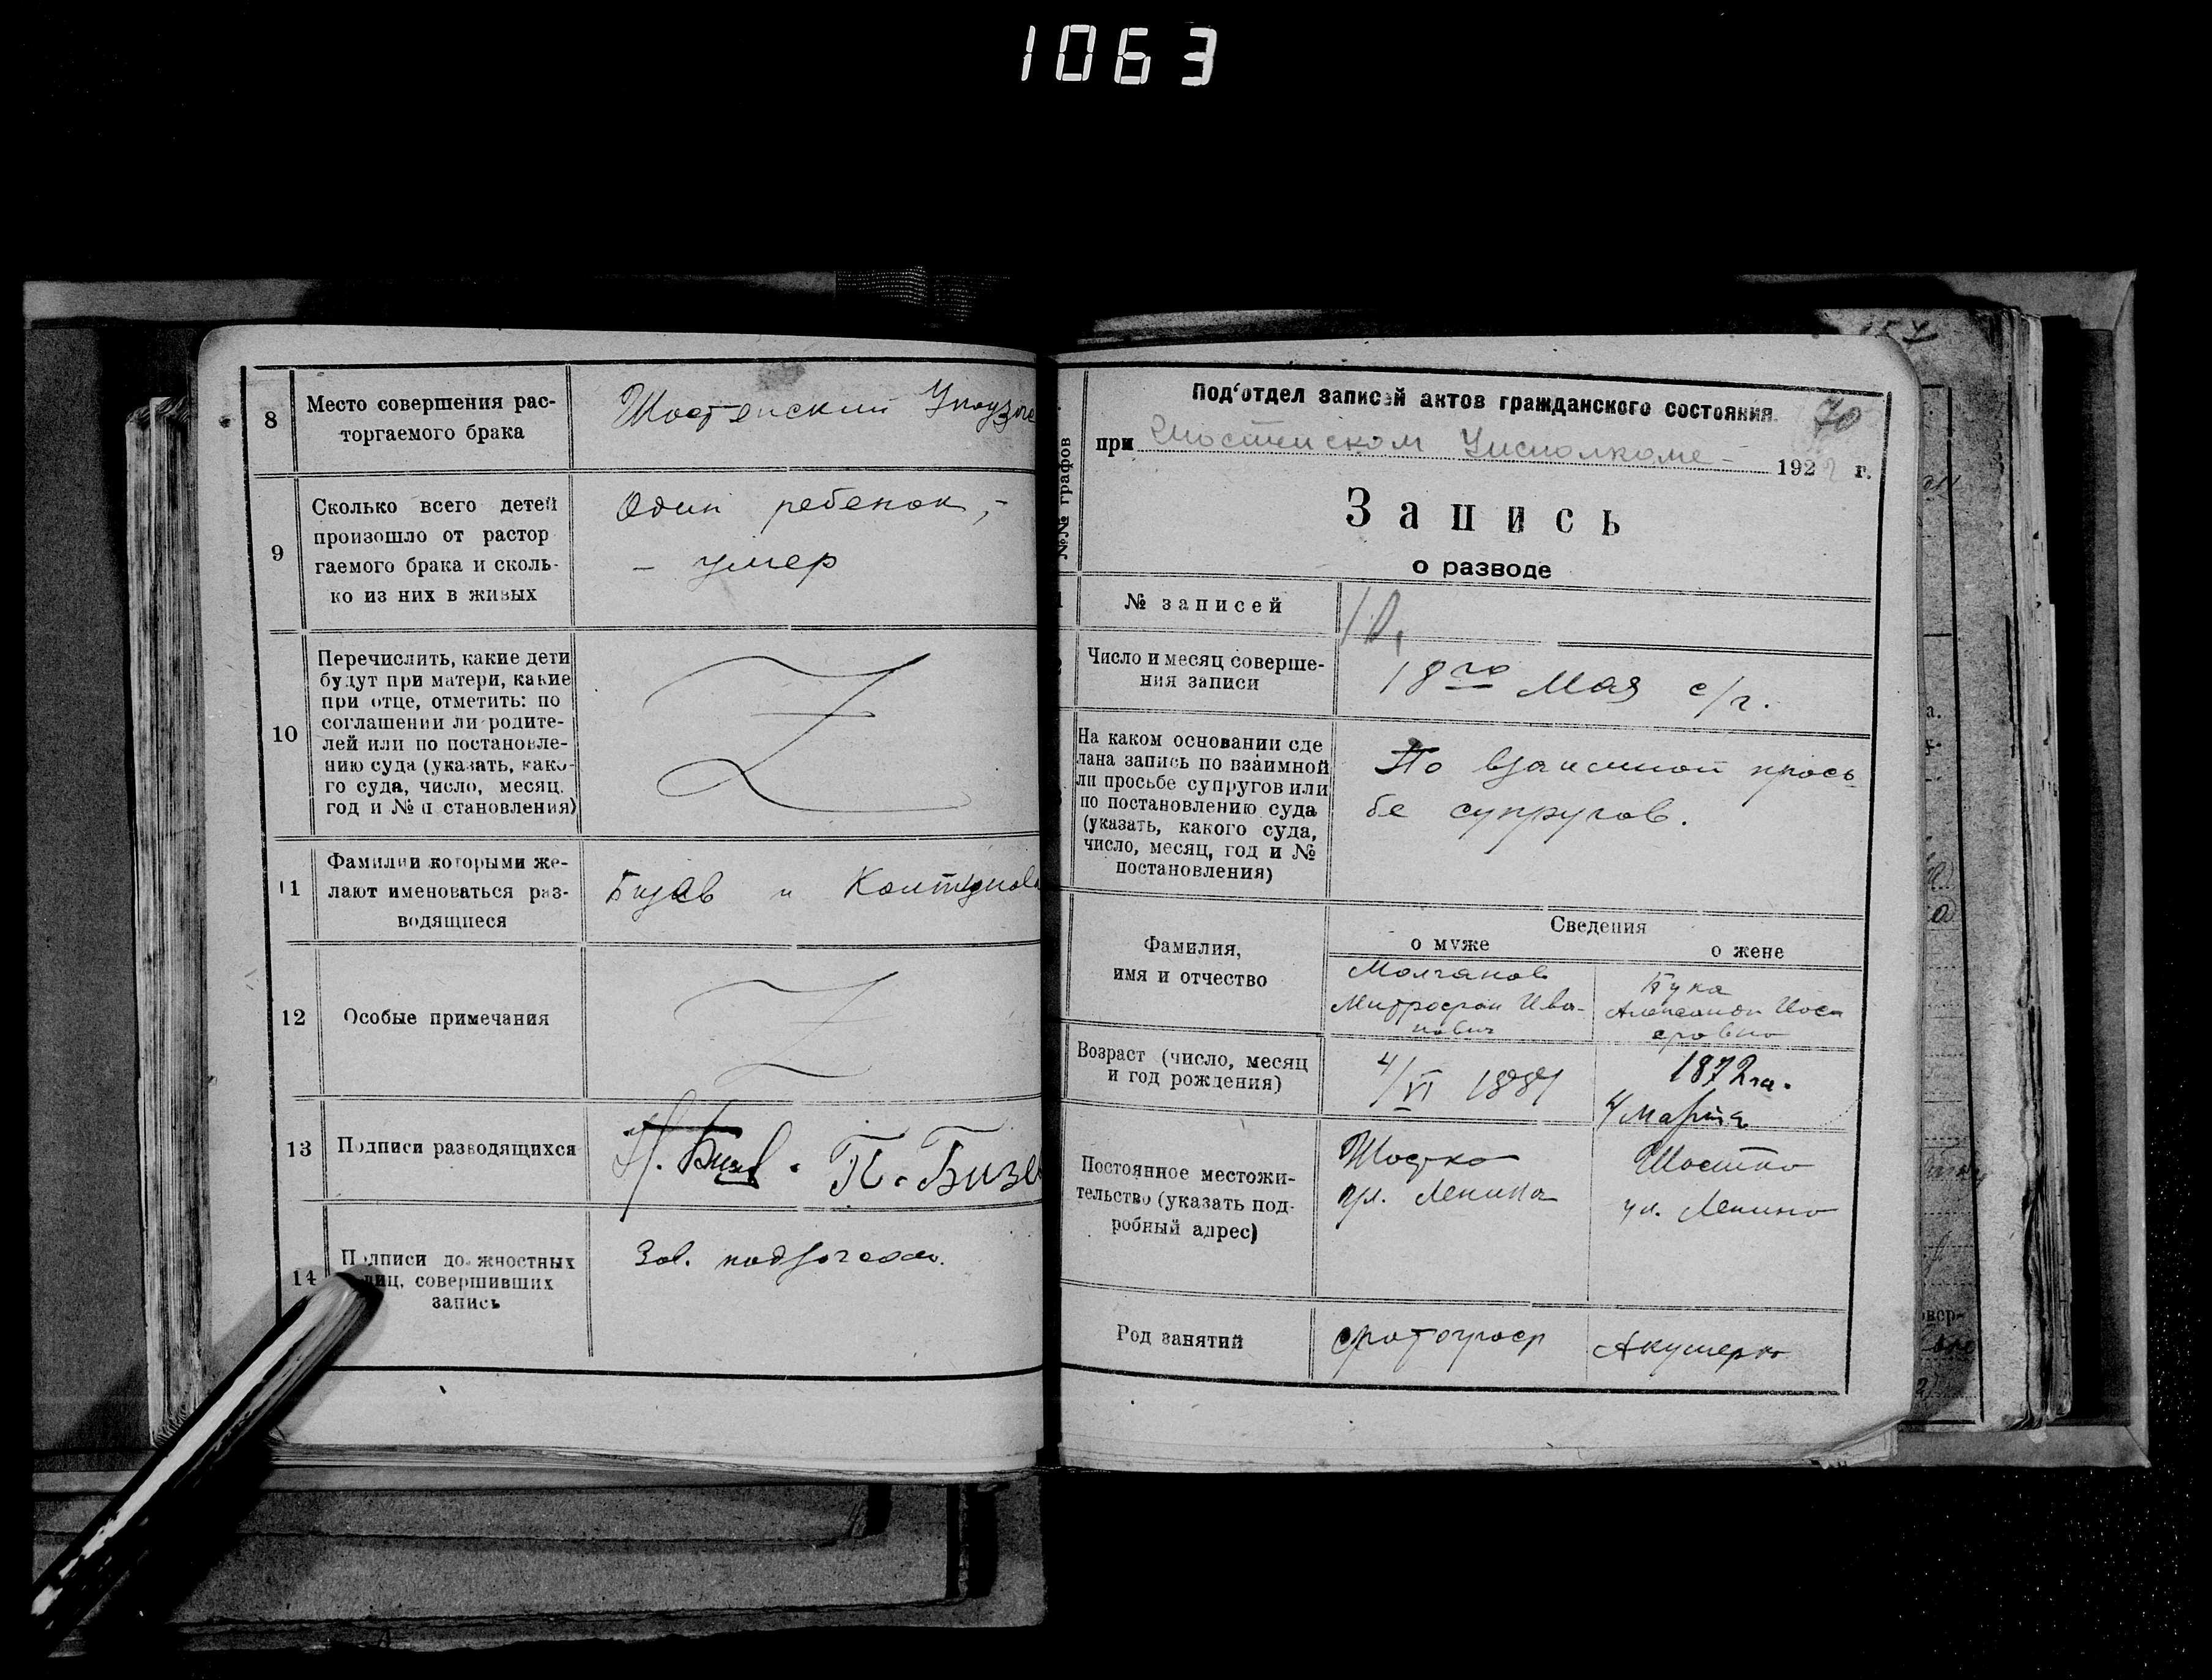 1063
8
Место совершения рас-
торгаемого брака
Шостенский
9
Сколько всего детей
произошло от растор
гаемого брака и сколь-
ко из них в живых
Один ребенок, -
- умер
10
Перечислить, какие дети
будут при матери, какие
при отце, отметить: по
соглашении ли родите-
лей или по постановле-
нию суда (указать, како-
го суда, число, месяц,
год и № п становления)
11
Фамилии которыми же-
лают именоваться раз-
водящиеся
Бизев и
12
Особые примечания
13
Подписи разводящихся
Н. Бизев. П. Бизе
14
Подписи должностных
лиц, совершивших
запись
Зав. подотделом.
№№ графов
Под‘отдел записей актов гражданского состояния.
70
при Шостенском Уисполкоме - 1922 г.
Запись
о разводе
№ записей
10,
Число и месяц соверше-
ния записи
18го Мая с/г.
На каком основании сде
лана запись по взаимной
ли просьбе супругов или
по постановлению суда
(указать, какого суда,
число, месяц, год и №
постановления)
По взаимной прось
бе супругов.
Фамилия,
имя и отчество
Сведения
о муже
о жене
Молчанов
Митрофан Ива-
нович
Бука
Александра Иоси
фовна
Возраст (число, месяц
и год рождения)
4/VI
1872 га.
4/Марта
Постоянное местожи-
тельство (указать под-
робный адрес)
Шостка
ул. Ленина
Шостка
ул. Ленина
Род занятий
фотограф
Акушерка